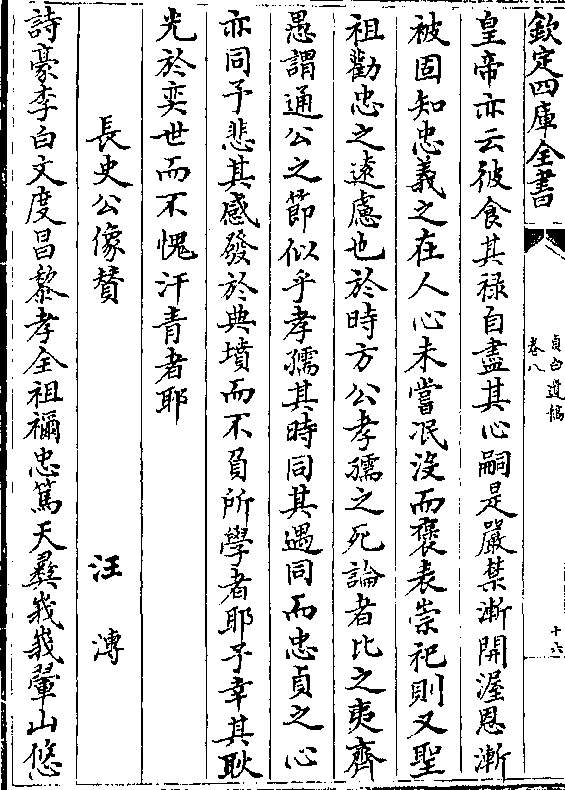 欽定四庫全書
貞白遺稿
卷八
十六
皇帝亦云彼食其祿自盡其心嗣是嚴禁漸開渥恩漸
被固知忠義之在人心未嘗泯沒而褒表崇祀則又聖
祖勸忠之遠慮也於時方公孝孺之死論者比之夷齊
愚謂通公之節似乎孝孺其時同其遇同而忠貞之心
亦同予悲其感發於典墳而不負所學者耶予幸其耿
光於奕世而不愧汗青者耶
長史公像賛
汪溥
詩豪李白文度昌黎孝全祖禰忠篤天彞峩峩翬山悠